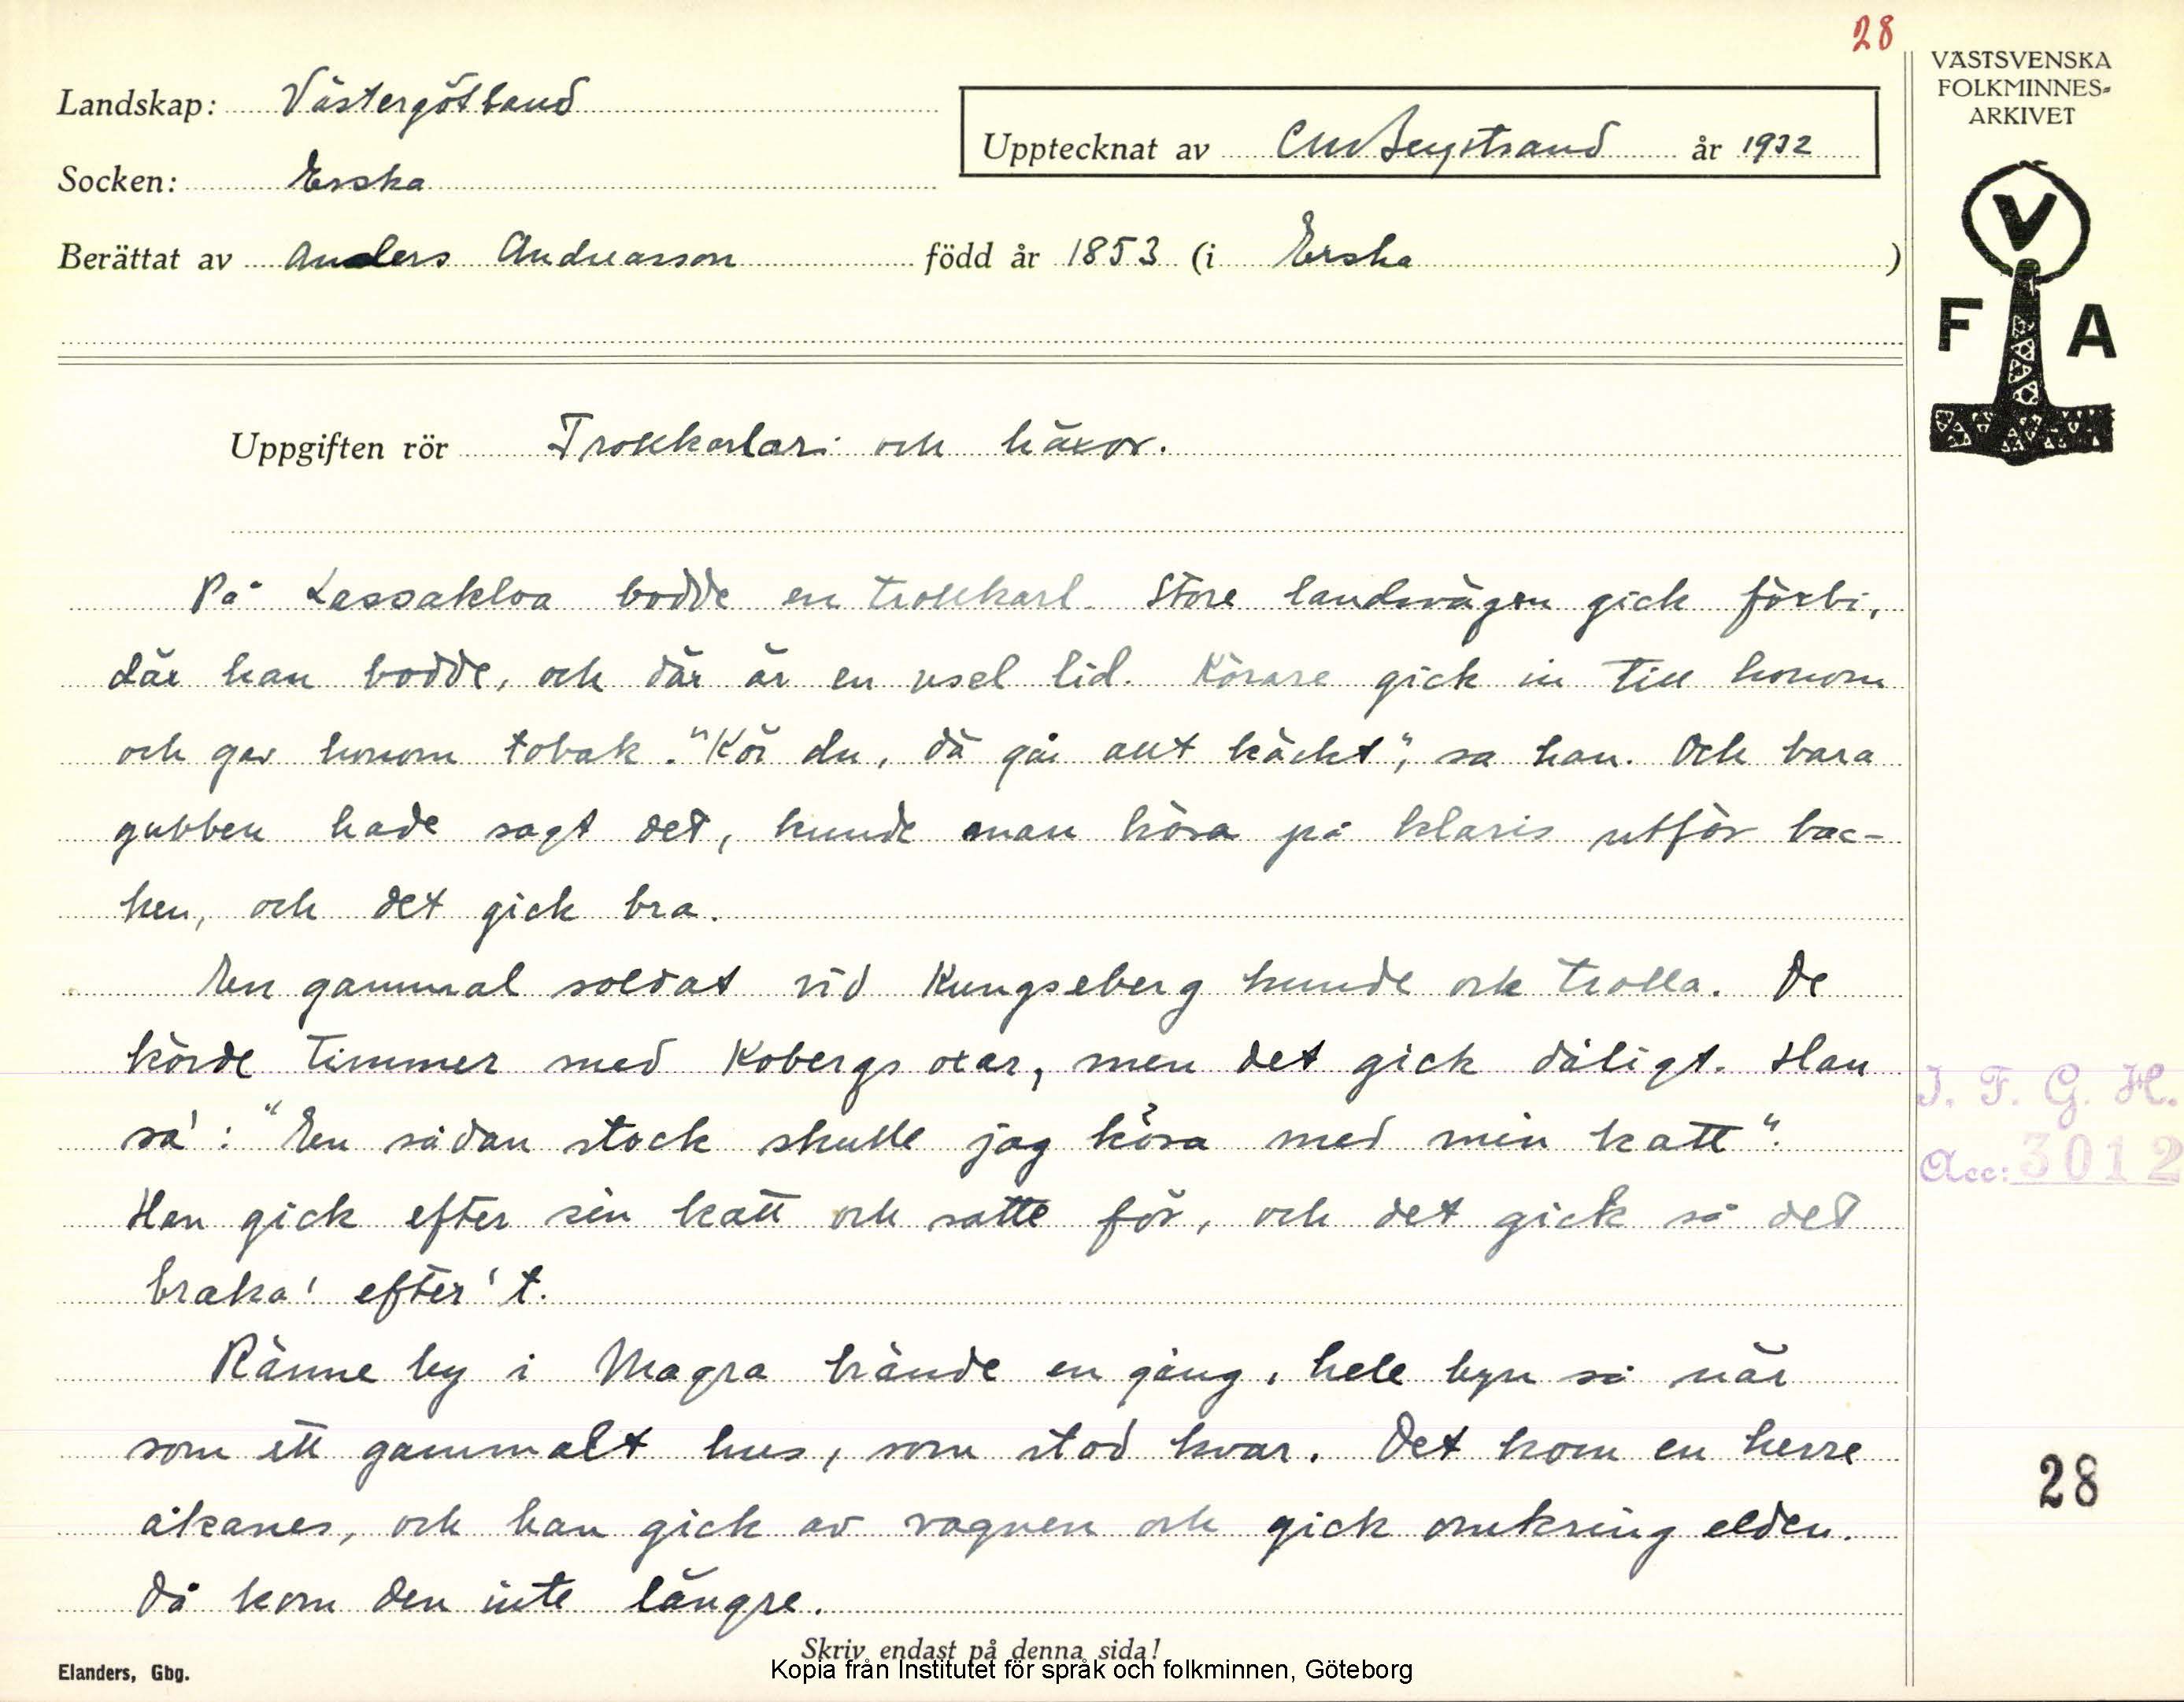 28
VÄSTSVENSKA
FOLKMINNES-
ARKIVET
Landskap: Västergötland
Upptecknat av CM Bergstrand år 1932
Socken: Erska
Berättat av Anders Andreasson född år 1853 (i Erska )
V
F A
Uppgiften rör Trollkarlar och häxor.
På Lassakloa bodde en trollkarl. Store landsvägen gick förbi,
där han bodde, och där är en usel lid. Körare gick in till honom
och gav honom tobak. "Kör du, då går allt käckt", sa han. Och bara
gubben hade sagt det, kunde man köra på klaris utför bac-
ken, och det gick bra.
En gammal soldat vid Kungseberg kunde ock trolla. De
körde timmer med Kobergs oxar, men det gick dåligt. Han
sa': "En sådan stock skulle jag köra med min katt".
Han gick efter sin katt och satte för, och det gick så det
braka' efter't.
Ränne by i Magra brände en gång, hele byn så när
som ett gammalt hus, som stod kvar. Det kom en herre
åkanes, och han gick av vagnen och gick omkring elden.
Då kom den inte längre.
I. F. G. H.
Acc: 3012
28
Skriv endast på denna sida!
Elanders, Gbg.
Kopia från Institutet för språk och folkminnen, Göteborg